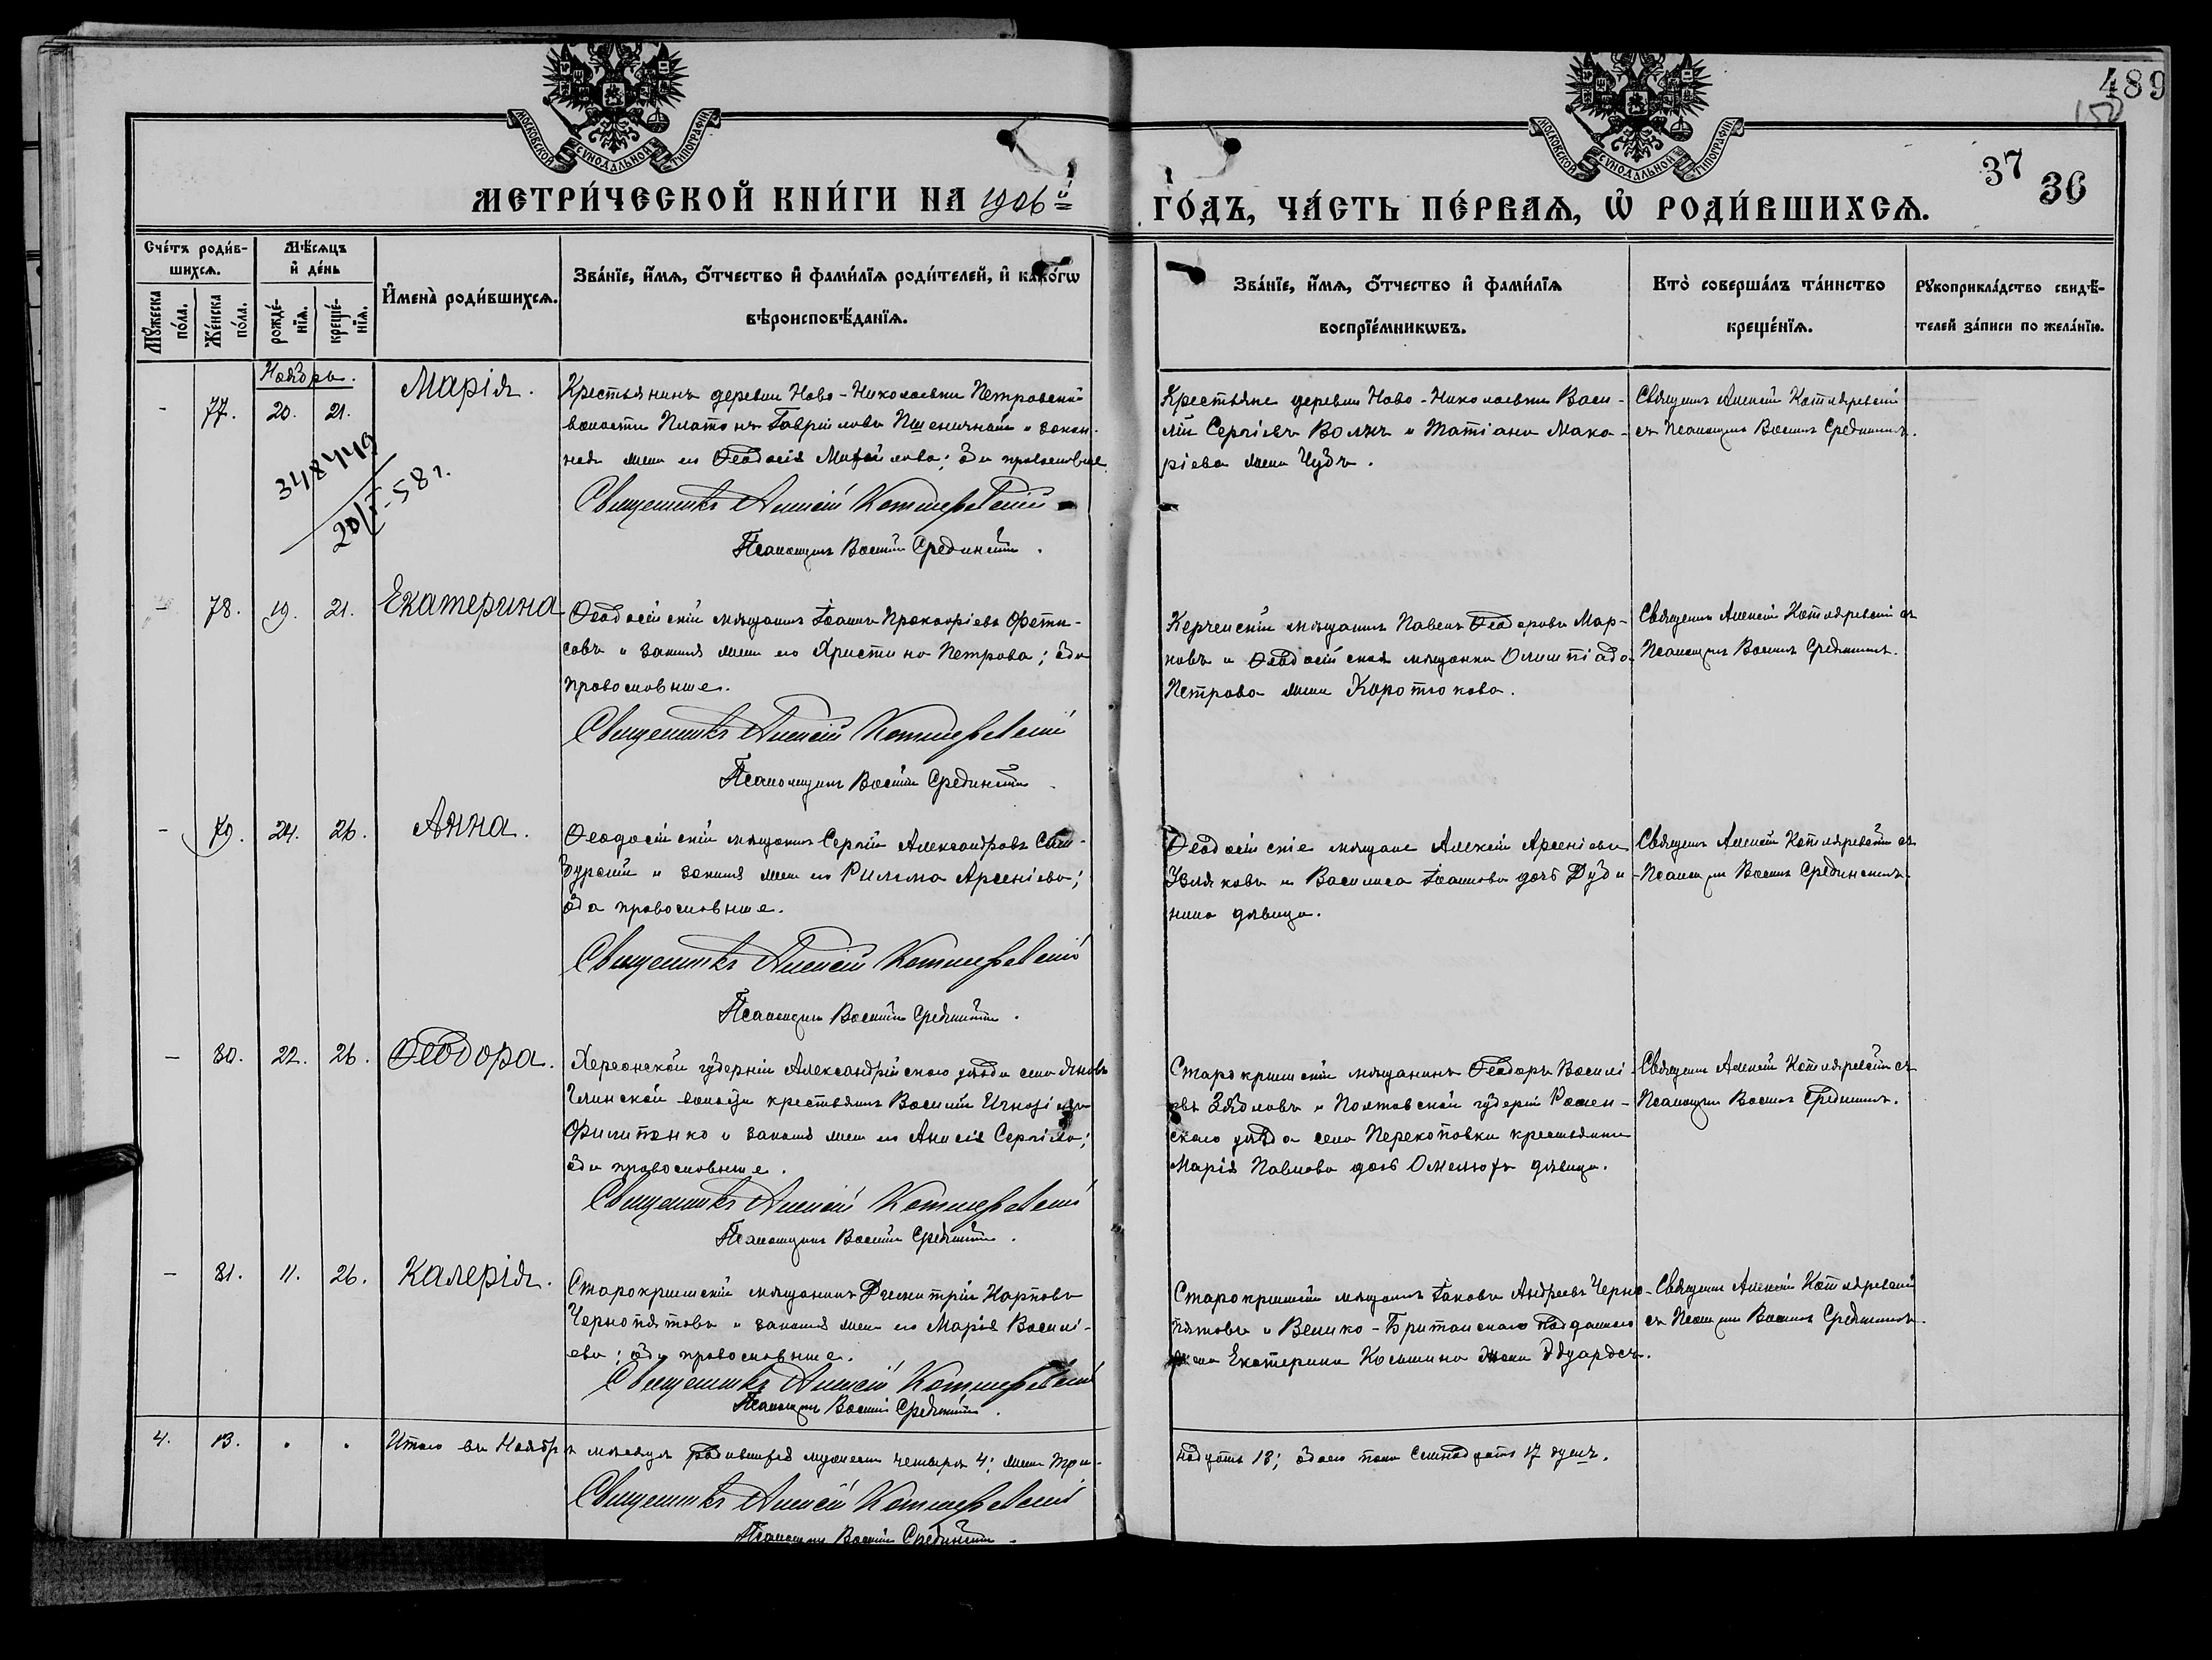 МОСКОВСКОЙ СѴНОДАЛЬНОЙ ТИПОГРАФІИ
МОСКОВСКОЙ СѴНОДАЛЬНОЙ ТИПОГРАФІИ
489
150
37 36
МЕТРИ́ЧЕСКОЙ КНИ́ГИ НА 1906й
ГО́ДЪ, ЧА́СТЬ ПЕ́РВАѦ, Ѡ҆ РОДИ́ВШИХСѦ.
Сче́тъ роди́в-
шихсѧ.
Мѣ́сѧцъ
и҆ де́нь
И҆мена̀ роди́вшихсѧ.
Зва́нїе, и҆́мѧ, ѻ҆́тчество и҆ фами́лїѧ роди́телей, и҆ како́гѡ
вѣроисповѣ́данїѧ.
Зва́нїе, и҆́мѧ, ѻ҆́тчество и҆ фами́лїѧ
воспрїе́мникѡвъ.
Кто̀ соверша́лъ та́инство
креще́нїѧ.
Рꙋкоприкла́дство свидѣ́-
телей за́писи по жела́нїю.
Мꙋ́жеска
по́ла.
Же́нска
по́ла.
рожде́-
нїѧ.
креще́-
нїѧ.
Ноябрь.
- 77. 20. 21. Марія.
Крестьянинъ деревни Ново-Николаевки Петровской
волости Платонъ Гавріиловъ Пшеничный и закон-
ная жена его Ѳеодосія Михайлова; оба православные.
Священникъ Алексій Котляревскій
Псаломщикъ Василій Срединскій.
Крестьяне деревни Ново-Николаевки Васи-
лій Сергіевъ Волжъ и Татіана Мака-
ріева жена Чудъ.
Священ. Алексій Котляревскій
съ Псаломщик. Василіем Срединским.
348449
20/I-58 г.
- 78. 19. 21. Екатерина
Ѳеодосійскій мѣщанинъ Іоаннъ Прокопіевъ Фети-
совъ и законная жена его Христина Петрова; оба
православные.
Священникъ Алексій Котляревскій
Псаломщикъ Василій Срединскій
Керченскій мѣщанинъ Павелъ Ѳеодоровъ Мар-
ковъ и Ѳеодосійская мѣщанка Олимпіада
Петрова жена Короткова.
Священ. Алексій Котляревскій съ
Псаломщик. Василіем Срединским.
- 79. 24. 26. Анна.
Ѳеодосійскій мѣщанинъ Сергій Александровъ
и законная жена его Римма Арсеніева;
оба православные.
Священникъ Алексій Котляревскій
Псаломщикъ Василій Срединскій.
Ѳеодосійскіе мѣщане Алексій Арсеніевъ
и Василиса Іоаннова дочь Дуди-
нина дѣвица.
Священ. Алексій Котляревскій съ
Псаломщик. Василіем Срединским.
- 80. 22. 26. Ѳеодора.
Херсонской губерніи Александрійскаго уѣзда села
волости крестьянинъ Василій Игнатіевъ
Филипенко и законная жена его Анисія Сергіева;
оба православные.
Священникъ Алексій Котляревскій
Псаломщикъ Василій Срединскій.
Старокрымскій мѣщанинъ Ѳеодоръ Василі-
евъ Зябловъ и Полтавской губерніи Ромен-
скаго уѣзда села Перекоповки крестьянка
Марія Павлова дочь дѣвица.
Священ. Алексій Котляревскій съ
Псаломщик. Василіем Срединским.
- 81. 11. 26. Калерія.
Старокрымскій мѣщанинъ Димитрій Карповъ
Чернопятовъ и законная жена его Марія Василі-
ева; оба православные.
Священникъ Алексій Котляревскій
Псаломщикъ Василій Срединскій.
Старокрымскій мѣщанинъ Іаковъ Андреевъ Черно-
пятовъ и Велико-Британскаго подданнаго
жена Екатерина Косьмина Эдуардсъ.
Священ. Алексій Котляревскій
съ Псаломщик. Василіем Срединским.
4. 13. . . Итого въ Ноябрѣ мѣсяцѣ родившихся мужеска четыре 4; жен. три-
надцать 13; обоего пола семнадцать 17 душъ.
Священникъ Алексій Котляревскій
Псаломщикъ Василій Срединскій.